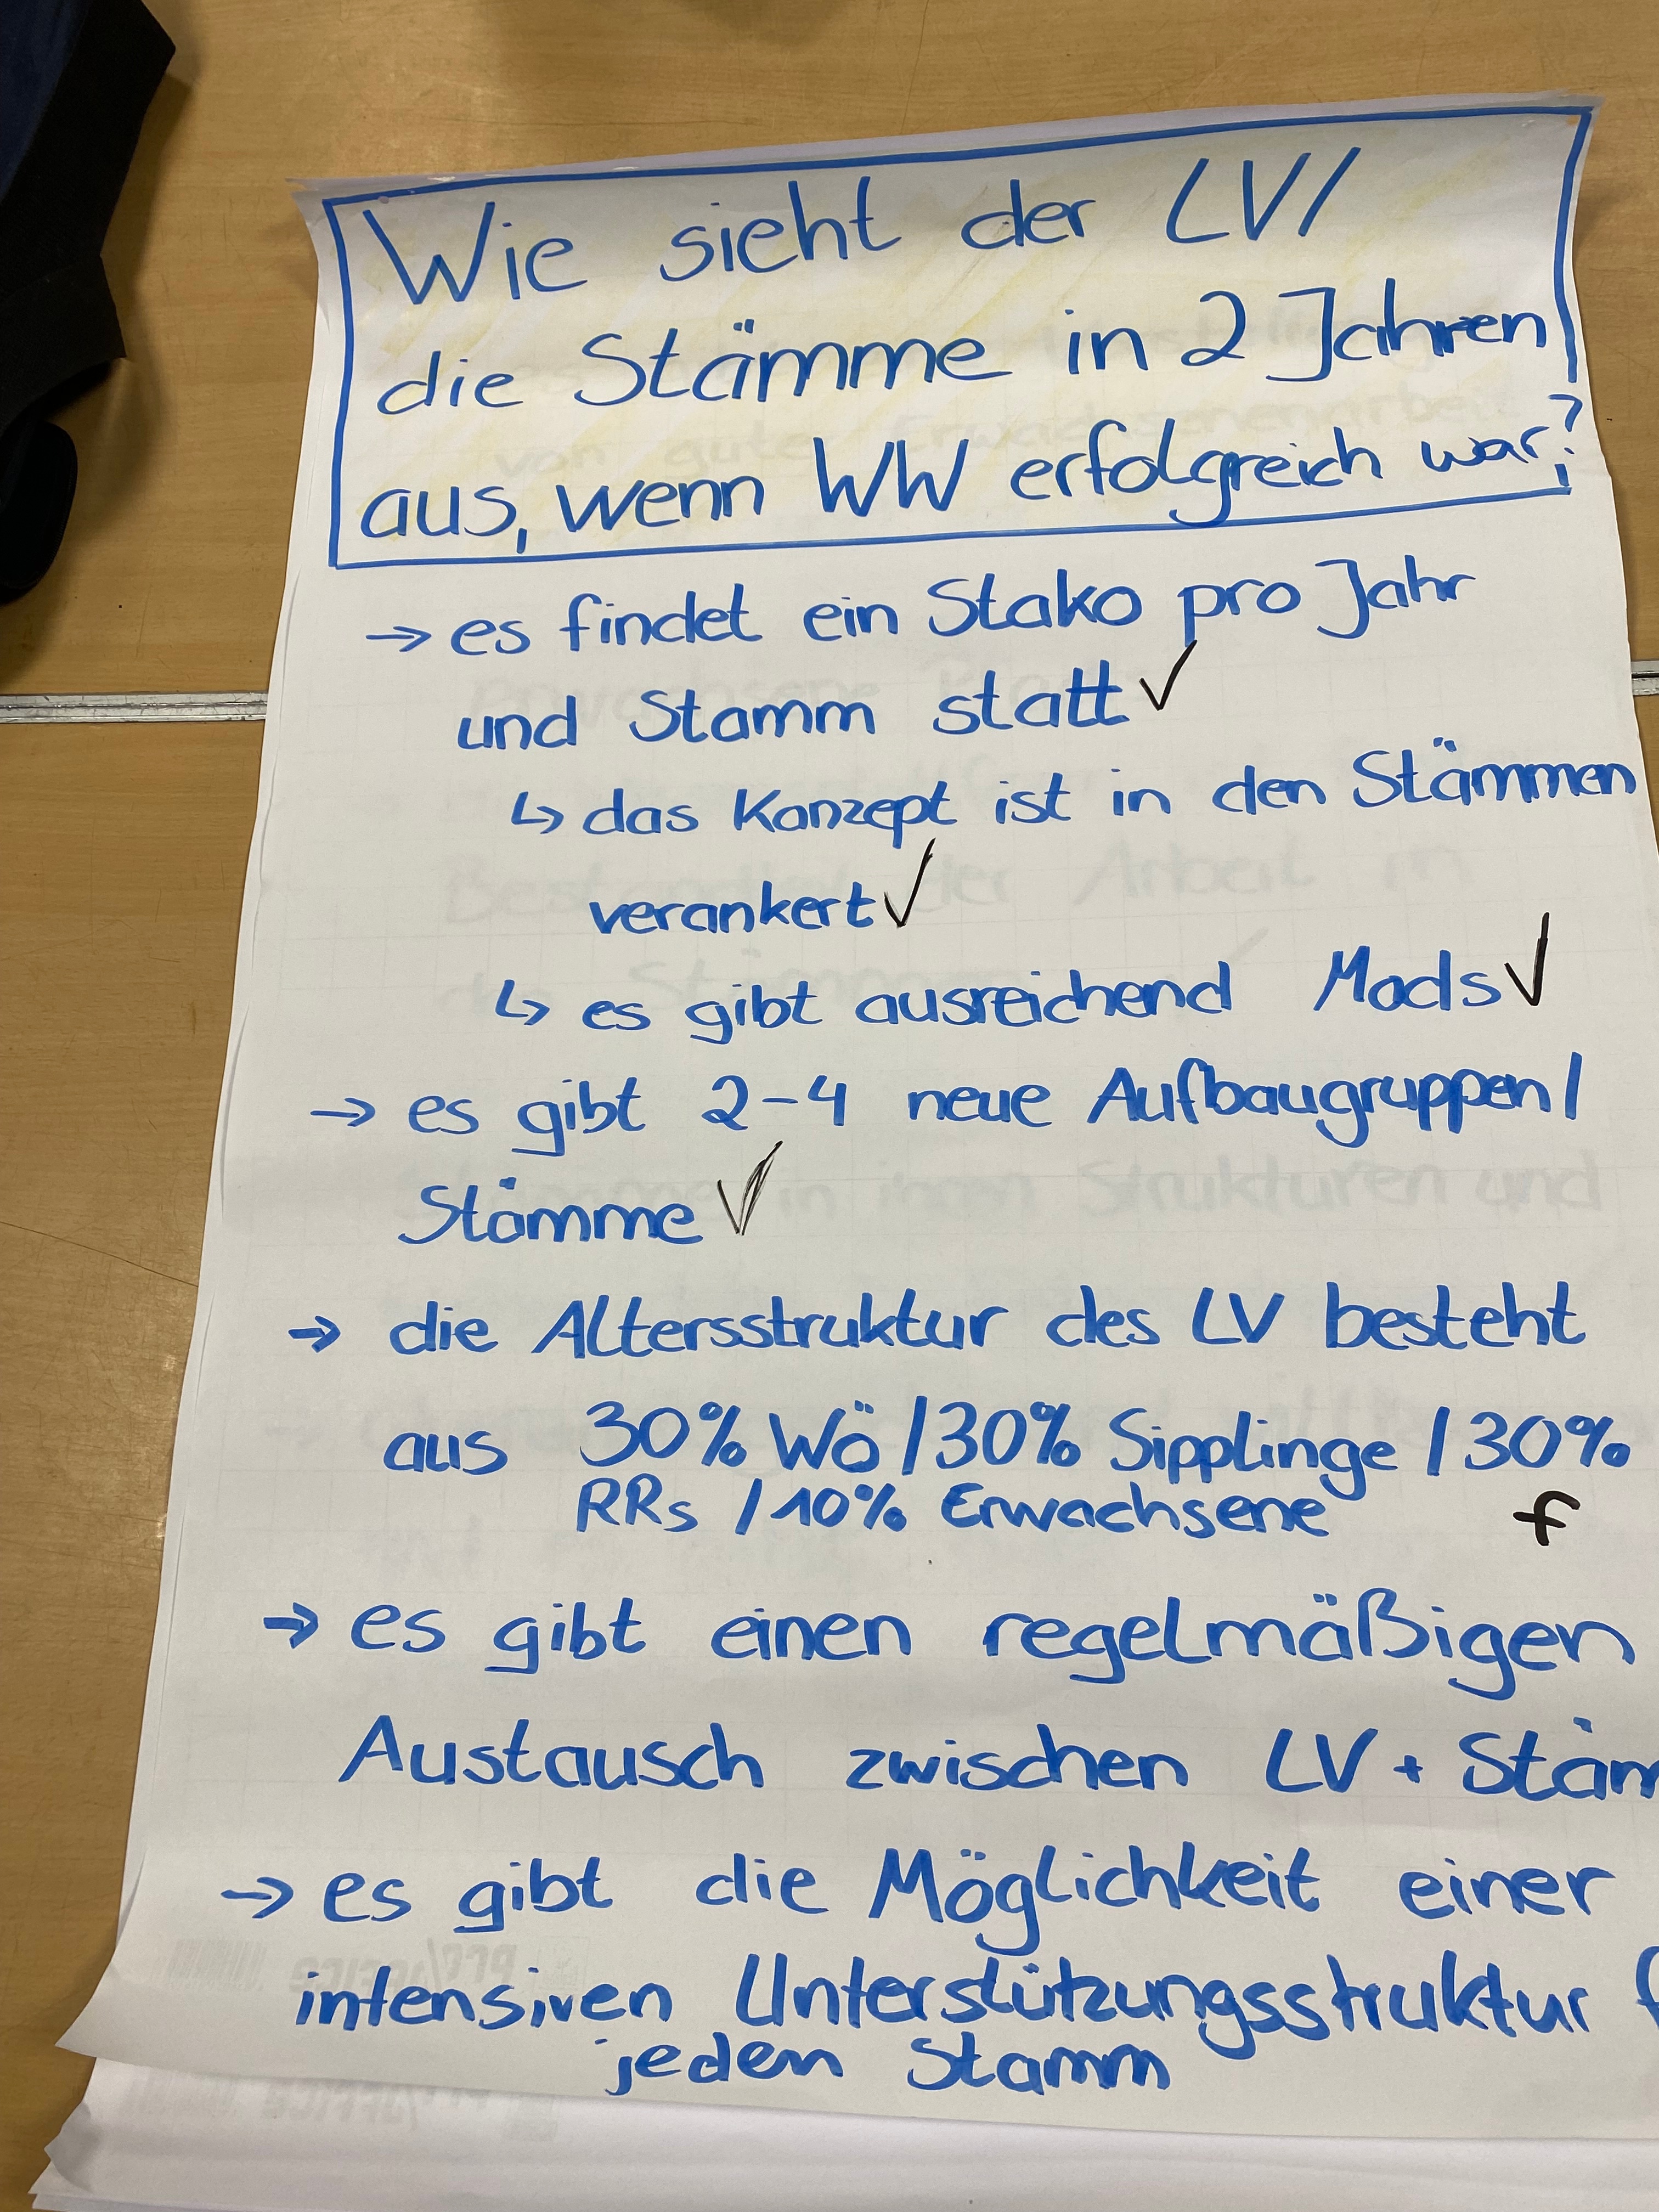 Wie sieht der LV/
die Stämme in 2 Jahren
aus, wenn WW erfolgreich war?
→ es findet ein Stako pro Jahr
und Stamm statt ✓
↳ das Konzept ist in den Stämmen
verankert ✓
↳ es gibt ausreichend Mods ✓
→ es gibt 2-4 neue Aufbaugruppen/
Stämme ✓
→ die Altersstruktur des LV besteht
aus 30% Wö / 30% Sipplinge / 30%
RRs / 10% Erwachsene f
→ es gibt einen regelmäßigen
Austausch zwischen LV + Stäm
→ es gibt die Möglichkeit einer
intensiven Unterstützungsstruktur f
jeden Stamm